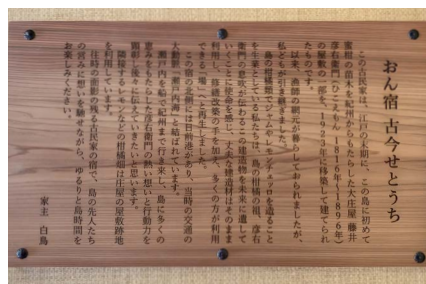 おん宿 古今せとうち
この古民家は、江戸の末期に、この島に初めて
蜜柑の苗木を紀州からもたらした大庄屋 藤井
彦右衛門(ひこえもん 1816年〜1896年)
の屋敷の一部を、1923年に移築して建てられ
たものです。
以来、漁師の網元が暮らしておられましたが、
私どもが引き継ぎました。
島の柑橘類でジャムやレモンチェッロを造ること
を生業としている私たちは、島の柑橘の祖、彦右
衛門の息吹が伝わるこの建造物を未来に遺して
いくことに使命を感じ、丈夫な建造材はそのまま
利用し、基礎改築の手を加え、多くの方が利用
できる「場」へと再生しました。
この宿の北側には日前港があり、当時の交通の
大動脈、瀬戸内海へと結ばれています。
瀬戸内を船で紀州まで行き来し、島に多くの
恵みをもたらした彦右衛門の熱い想いと行動力を
顕彰し後々に伝えていきたいと思います。
隣接するレモンなどの柑橘畑は庄屋の屋敷跡地
を利用しています。
往時の面影の残る古民家の宿で、島の先人たち
の営みに想いを馳せながら、ゆるりと島時間を
お楽しみください。
家主 白鳥